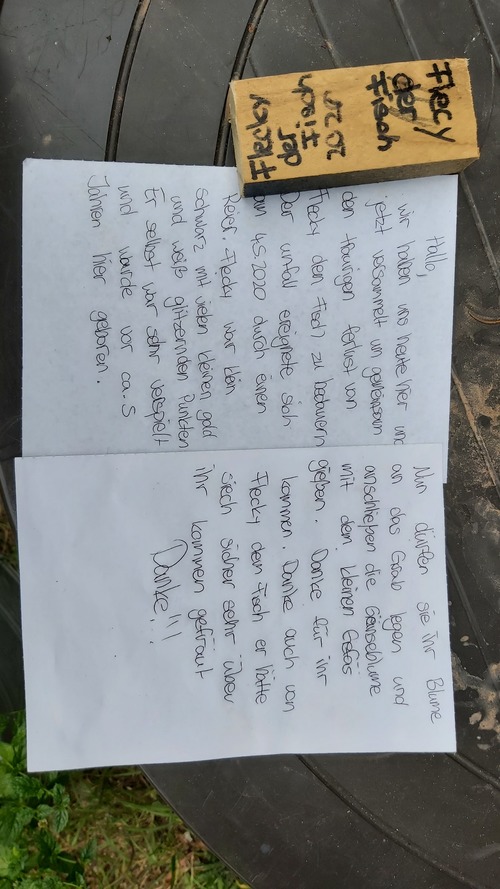 Flecy
der
Fisch
2020
Fisch
der
Flecky
Hallo,
wir haben uns heute hier und
jetzt versammelt um gemeinsam
den traurigen ferlust von
Flecky den Fisch zu bedauern
Der unfall ereignete sich
am 4.5.2020 durch einen
Reier. Flecky war klein
schwarz mit vielen kleinen gold
und weiß glitzernden Punkten
Er selbst war sehr verspielt
und wurde vor ca. 5
Jahren hier geboren.
Nun dürfen sie ihr Blume
an das Grab legen und
anschließen die Gänseblume
mit dem kleinen Gefäs
gießen. Danke für ihr
kommen. Danke auch von
Flecky dem Fisch er hätte
siech sicher sehr über
ihr kommen gefräut
Danke!!!